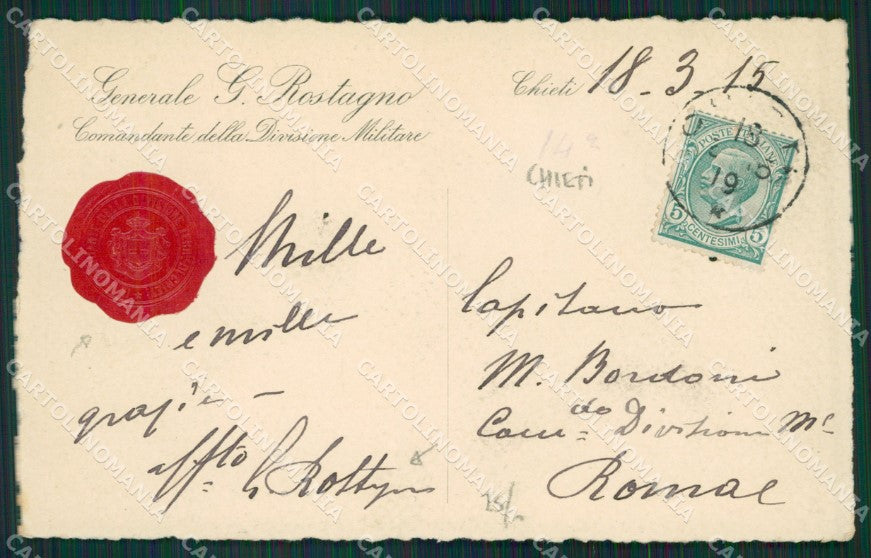 Generale G. Rostagno
Comandante della Divisione Militare
Chieti 18-3-15
CHIETI
POSTE ITALIANE
5 CENTESIMI 5
Mille
e mille
grazie -
affto G Rostagno
Capitano
M. Bordoni
Comdo Divisione Mre
Roma
CARTOLINOMANIA